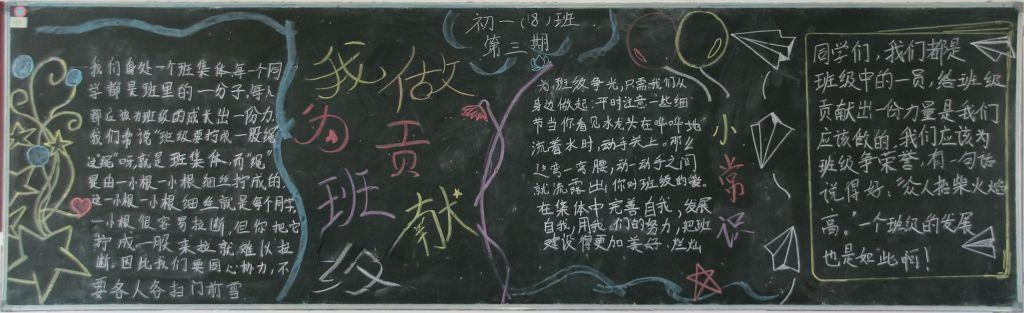 初一(8)班
第三期
我们身处一个班集体,每一个同
学都是班里的一分子,每人
都应该为班级的成长出一份力.
我们常说"班级要拧成一股绳"
这绳呀,就是班集体,而"绳"
是由一小根一小根细丝拧成的.
这一小根一小根细丝就是每个同学,
一小根很容易拉断,但你把它
拧成一股来拉就难以拉
断.因此我们要同心协力,不
要各人各扫门前雪
我为班级
做贡献
为班级争光,只需我们从
身边做起:平时注意一些细
节当你看见水龙头在哗哗地
流着水时,动手关上。那么
这弯一弯腰,动一动手之间
就流露出你对班级的爱。
在集体中完善自我,发展
自我,用我们的努力,把班
建设得更加美好.灿烂
小常识
同学们,我们都是
班级中的一员,给班级
贡献出一份力量是我们
应该做的.我们应该为
班级争荣誉.有一句话
说得好、"众人拾柴火焰
高。"一个班级的发展
也是如此啊!